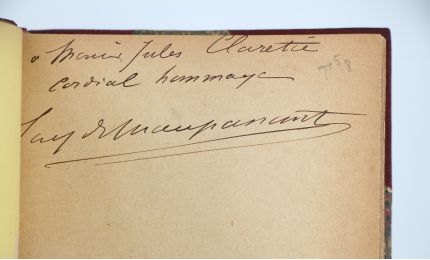 a Monsieur Jules Claretie
cordial hommage
Guy de Maupassant